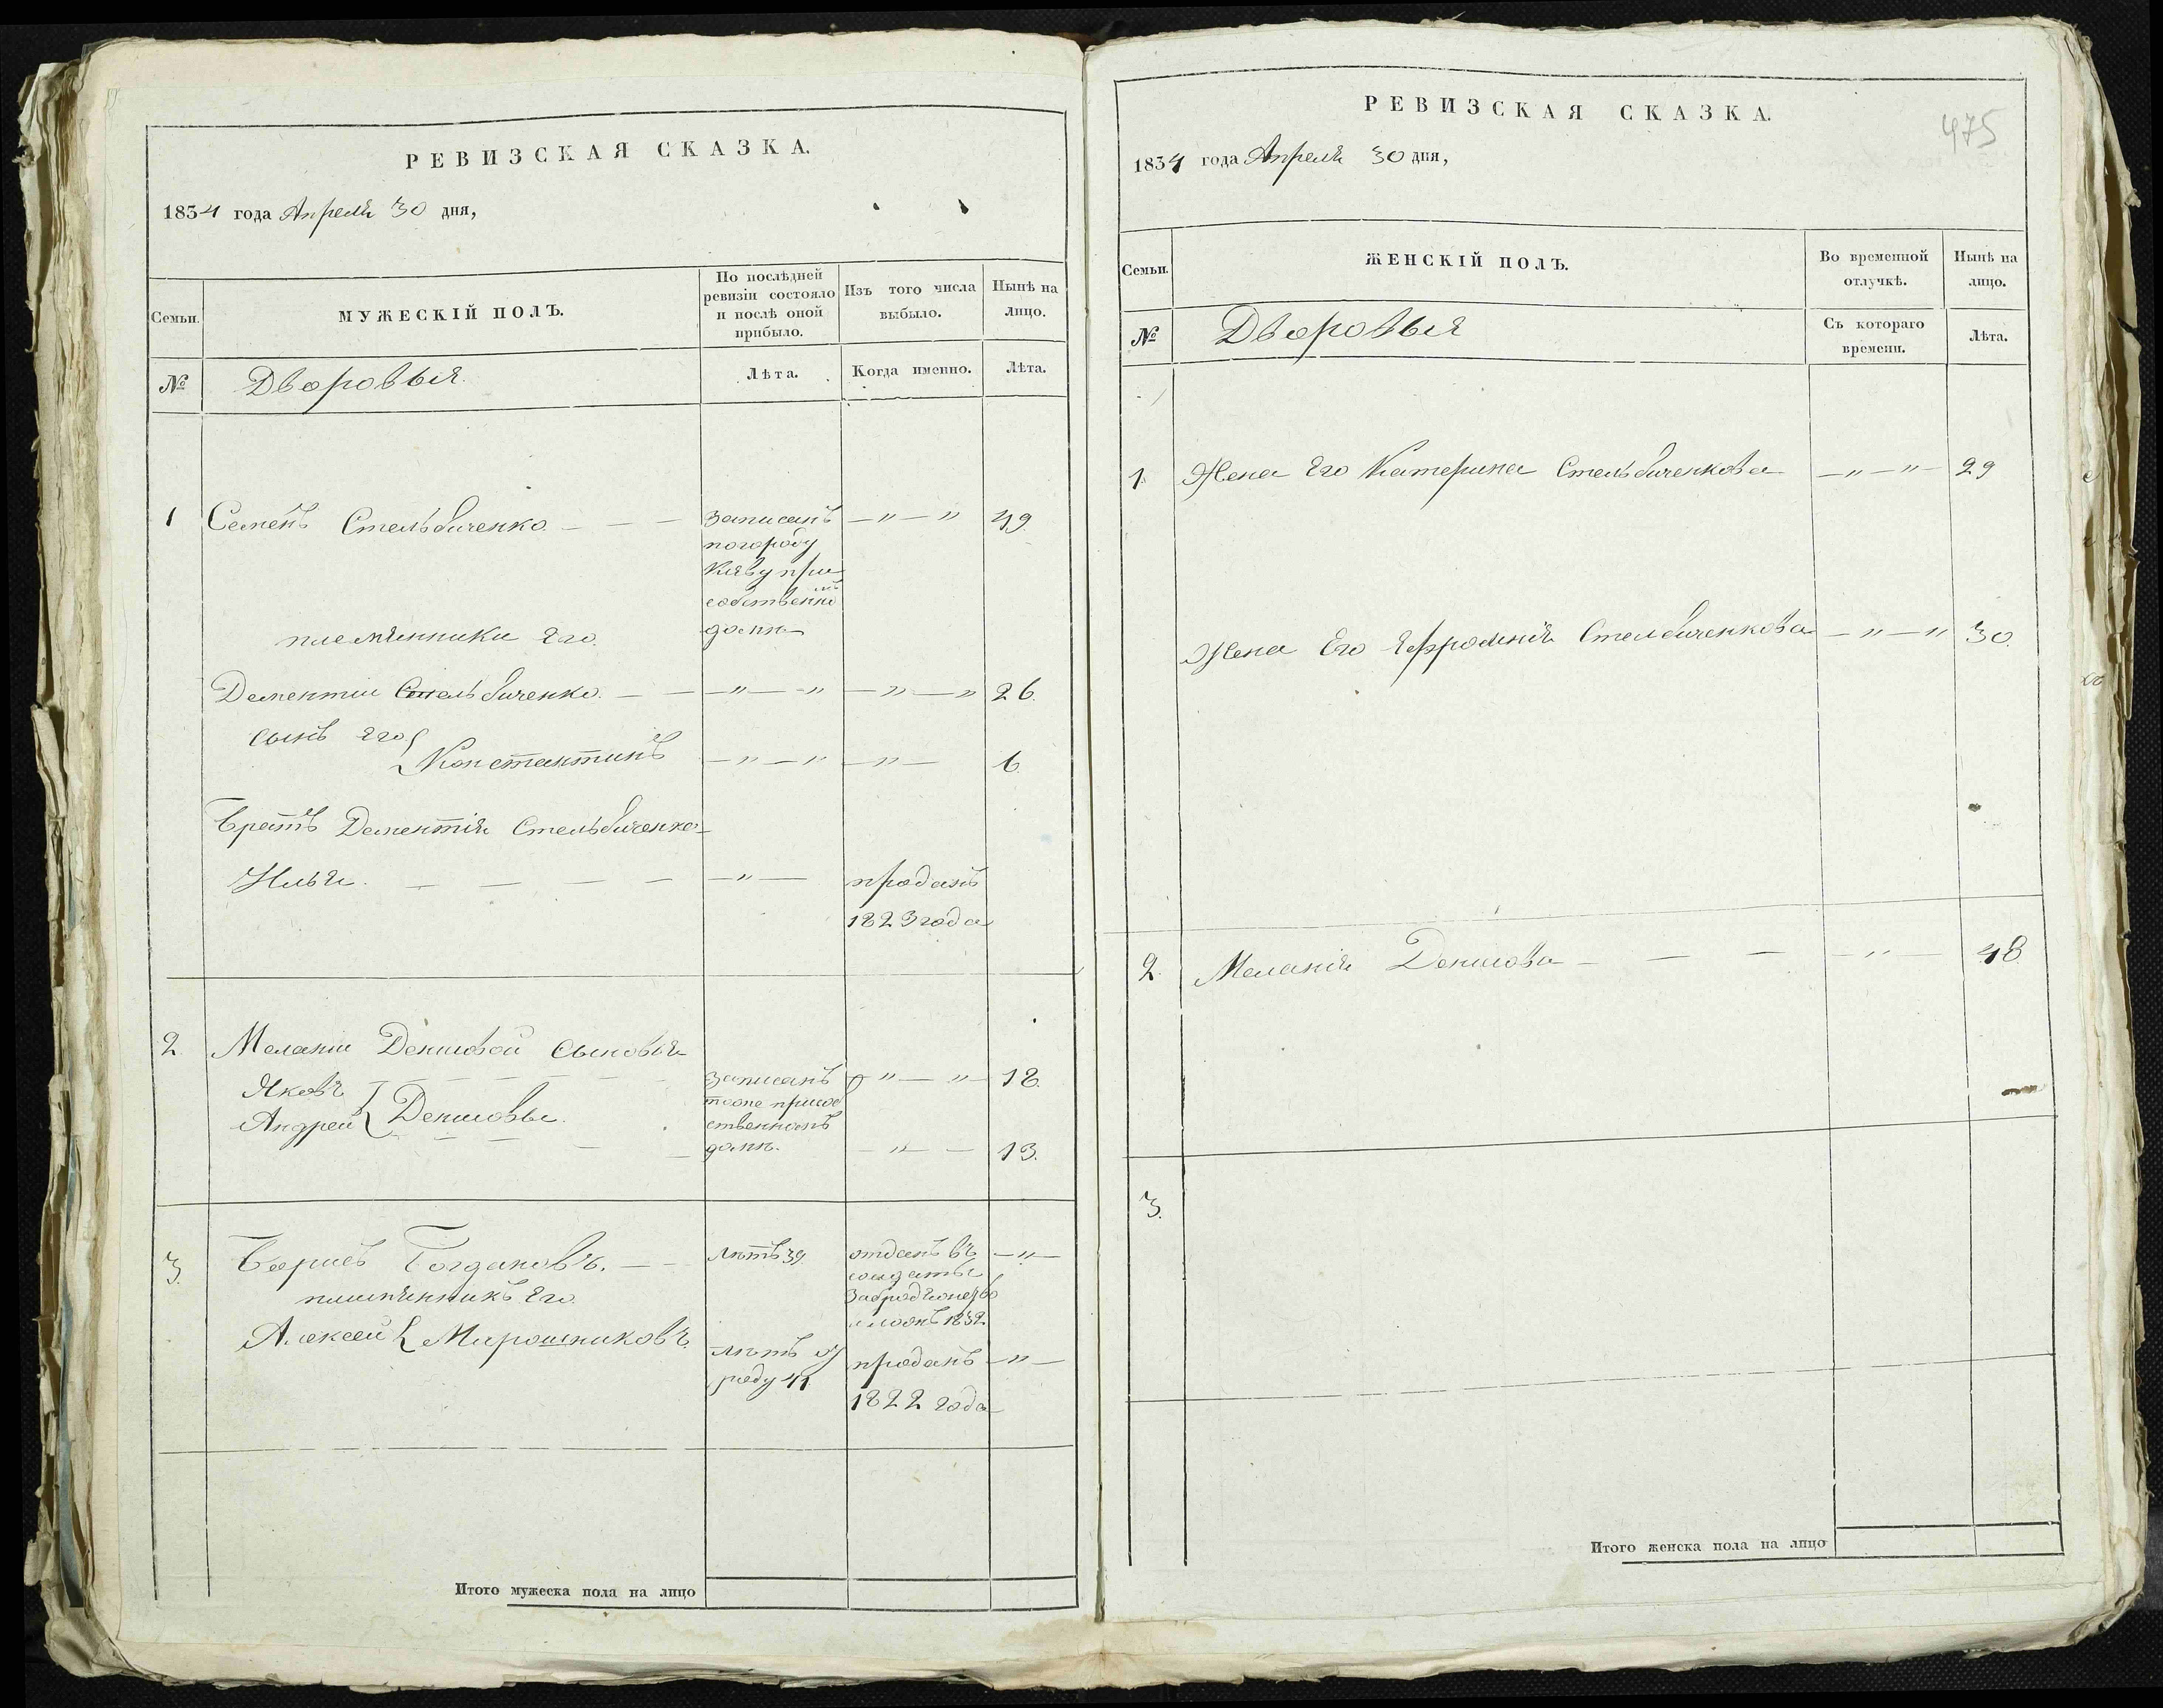 РЕВИЗСКАЯ СКАЗКА.
1834 года Апреля 30 дня,
Семьи.
МУЖЕСКІЙ ПОЛЪ.
По послѣдней ревизіи состояло и послѣ оной прибыло.
Изъ того числа выбыло.
Нынѣ на лицо.
№
Дворовыя.
Лѣта.
Когда именно.
Лѣта.
1 Семенъ Стельбиченко — — — записанъ — " — " 49
погороду
Кіеву при
собственно
мъ
домѣ
племянники Его.
Дементии Стельбиченко. — — — " — " — " — " 26.
сынъ его
Константинъ — " — " — " — 6.
Братъ Дементія Стельбиченко
Илья. — — — — — " — проданъ
1823 года
2. Меланіи Денисовой сыновья
Яковъ — — — — — записанъ " — " — 18.
тоже присоб
Андреи Денисовы.
ственномъ
домѣ. — " — 13.
3. Борисъ Богдановъ. — — лѣтъ 39 отданъ въ — " —
солдаты
племянникъ Его.
1832.
Алексей Мирошниковъ
лѣтъ
проданъ — " —
роду 41
1822 года
Итого мужеска пола на лицо
РЕВИЗСКАЯ СКАЗКА.
475
1834 года Апреля 30 дня,
Семьи.
ЖЕНСКІЙ ПОЛЪ.
Во временной отлучкѣ.
Нынѣ на лицо.
№
Дворовыя
Съ котораго времени.
Лѣта.
1. Жена Его Катерина Стельбиченкова — " — " — 29
Жена Его Ефросинія Стельбиченкова — " — " 30.
2. Меланія Денисова — — — — " — 48.
3.
Итого женска пола на лицо